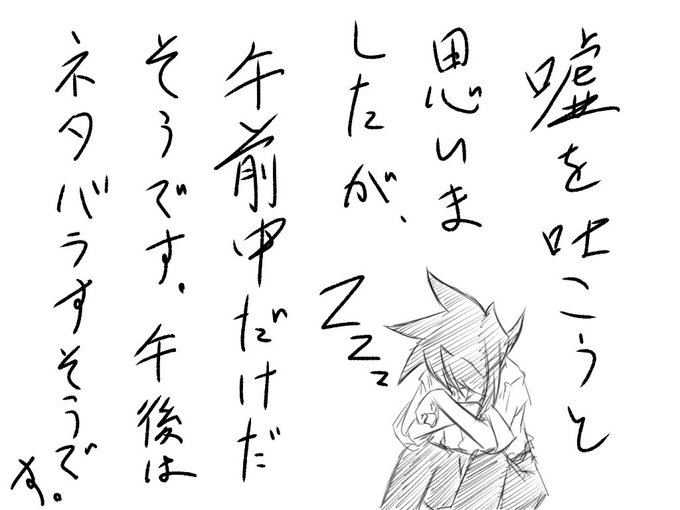 嘘を吐こうと
思いま
したが、
午前中だけだ
そうです。午後は
ネタバラすそうで
す。
ZZZ